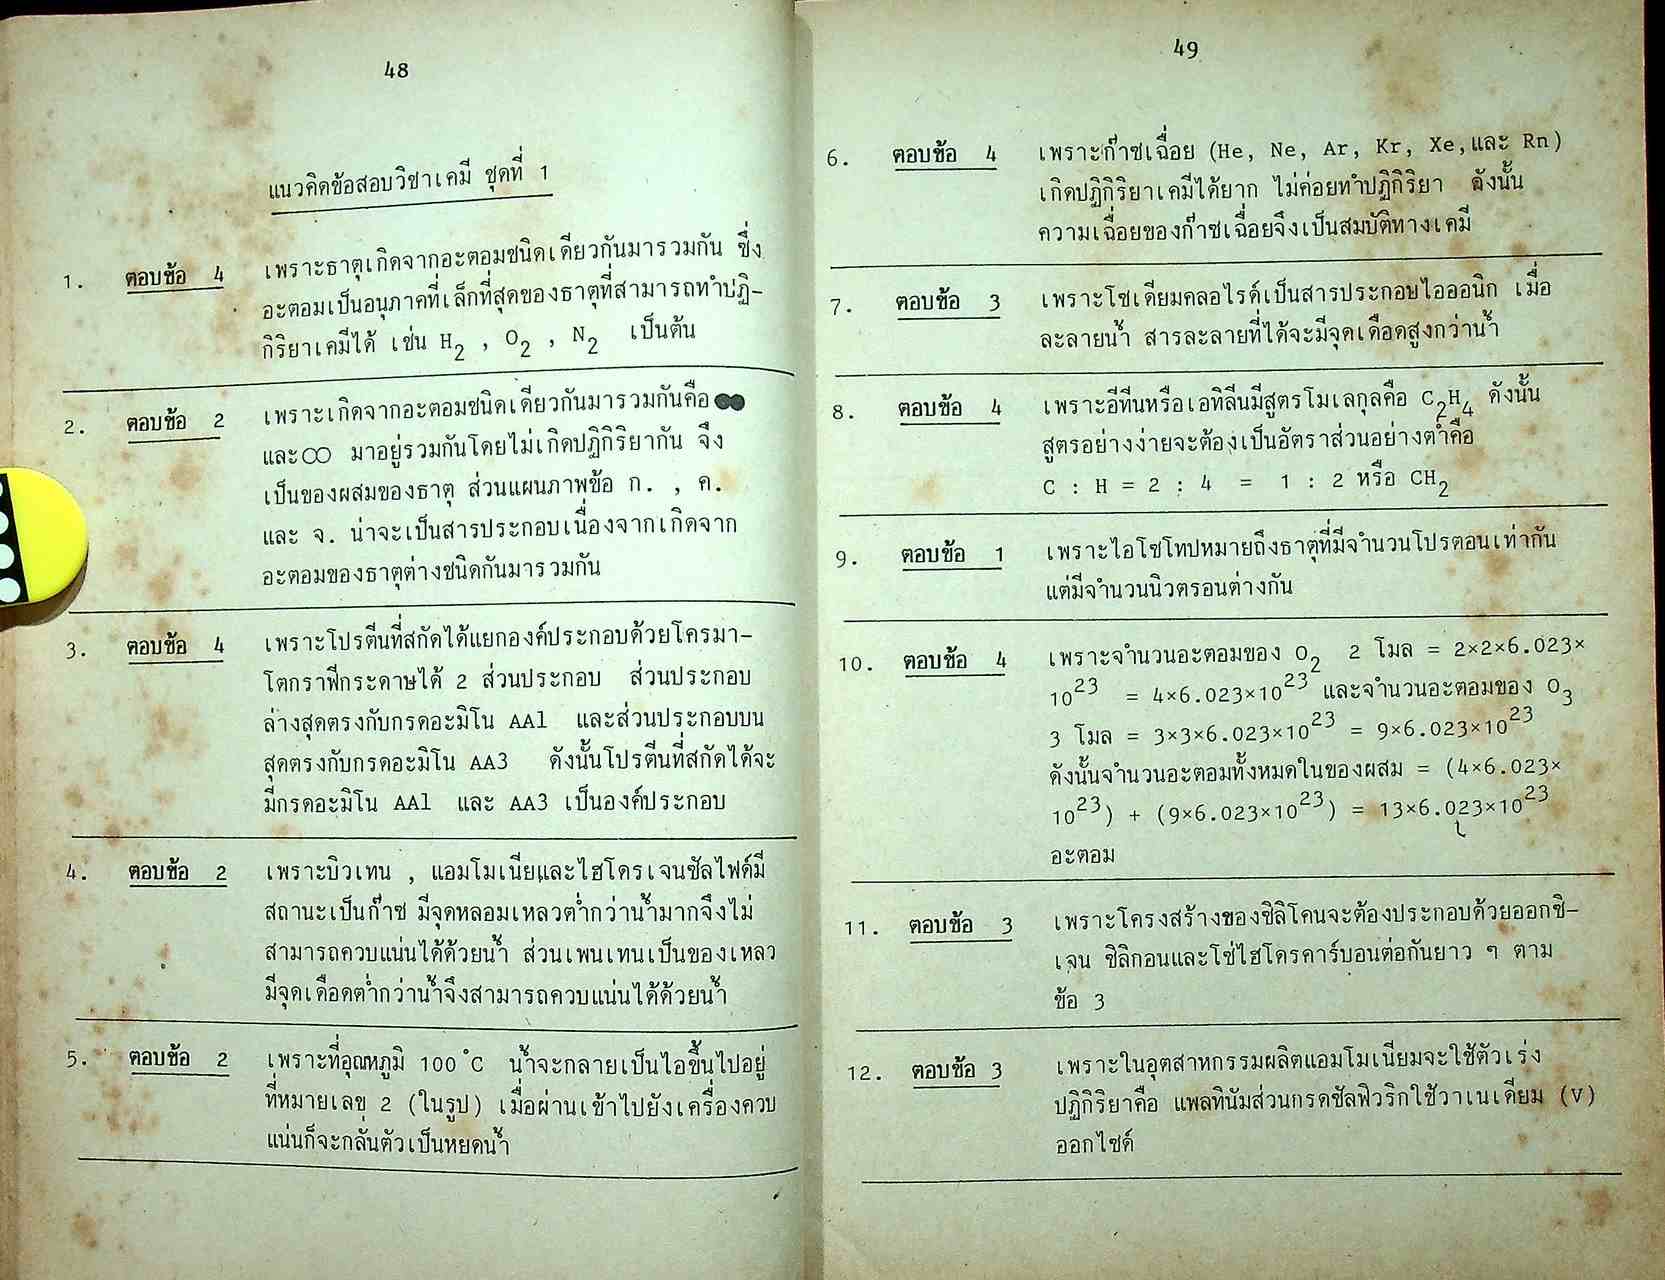 48
แนวคิดข้อสอบวิชาเคมี ชุดที่ 1
1. ตอบข้อ 4 เพราะธาตุเกิดจากอะตอมชนิดเดียวกันมารวมกัน ซึ่ง
อะตอมเป็นอนุภาคที่เล็กที่สุดของธาตุที่สามารถทำปฏิ-
กิริยาเคมีได้ เช่น H2 , O2 , N2 เป็นต้น
2. ตอบข้อ 2 เพราะเกิดจากอะตอมชนิดเดียวกันมารวมกันคือ
และ มาอยู่รวมกันโดยไม่เกิดปฏิกิริยากัน จึง
เป็นของผสมของธาตุ ส่วนแผนภาพข้อ ก. , ค.
และ จ. น่าจะเป็นสารประกอบเนื่องจากเกิดจาก
อะตอมของธาตุต่างชนิดกันมารวมกัน
3. ตอบข้อ 4 เพราะโปรตีนที่สกัดได้แยกองค์ประกอบด้วยโครมา-
โตกราฟีกระดาษได้ 2 ส่วนประกอบ ส่วนประกอบ
ล่างสุดตรงกับกรดอะมิโน AA1 และส่วนประกอบบน
สุดตรงกับกรดอะมิโน AA3 ดังนั้นโปรตีนที่สกัดได้จะ
มีกรดอะมิโน AA1 และ AA3 เป็นองค์ประกอบ
4. ตอบข้อ 2 เพราะบิวเทน , แอมโมเนียและไฮโดรเจนซัลไฟด์มี
สถานะเป็นก๊าซ มีจุดหลอมเหลวต่ำกว่าน้ำมากจึงไม่
สามารถควบแน่นได้ด้วยน้ำ ส่วนเพนเทนเป็นของเหลว
มีจุดเดือดต่ำกว่าน้ำจึงสามารถควบแน่นได้ด้วยน้ำ
5. ตอบข้อ 2 เพราะที่อุณหภูมิ 100°C น้ำจะกลายเป็นไอขึ้นไปอยู่
ที่หมายเลข 2 (ในรูป) เมื่อผ่านเข้าไปยังเครื่องควบ
แน่นก็จะกลั่นตัวเป็นหยดน้ำ
49
6. ตอบข้อ 4 เพราะก๊าซเฉื่อย (He, Ne, Ar, Kr, Xe,และ Rn)
เกิดปฏิกิริยาเคมีได้ยาก ไม่ค่อยทำปฏิกิริยา ดังนั้น
ความเฉื่อยของก๊าซเฉื่อยจึงเป็นสมบัติทางเคมี
7. ตอบข้อ 3 เพราะโซเดียมคลอไรด์เป็นสารประกอบไอออนิก เมื่อ
ละลายน้ำ สารละลายที่ได้จะมีจุดเดือดสูงกว่าน้ำ
8. ตอบข้อ 4 เพราะอีทีนหรือเอทิลีนมีสูตรโมเลกุลคือ C2H4 ดังนั้น
สูตรอย่างง่ายจะต้องเป็นอัตราส่วนอย่างต่ำคือ
C : H = 2 : 4 = 1 : 2 หรือ CH2
9. ตอบข้อ 1 เพราะไอโซโทปหมายถึงธาตุที่มีจำนวนโปรตอนเท่ากัน
แต่มีจำนวนนิวตรอนต่างกัน
10. ตอบข้อ 4 เพราะจำนวนอะตอมของ O2 2 โมล = 2×2×6.023×
10^23 = 4×6.023×10^23 และจำนวนอะตอมของ O3
3 โมล = 3×3×6.023×10^23 = 9×6.023×10^23
ดังนั้นจำนวนอะตอมทั้งหมดในของผสม = (4×6.023×
10^23) + (9×6.023×10^23) = 13×6.023×10^23
อะตอม
11. ตอบข้อ 3 เพราะโครงสร้างของซิลิโคนจะต้องประกอบด้วยออกซิ-
เจน ซิลิกอนและโซ่ไฮโดรคาร์บอนต่อกันยาว ๆ ตาม
ข้อ 3
12. ตอบข้อ 3 เพราะในอุตสาหกรรมผลิตแอมโมเนียมจะใช้ตัวเร่ง
ปฏิกิริยาคือ แพลทินัมส่วนกรดซัลฟิวริกใช้วาเนเดียม (V)
ออกไซด์